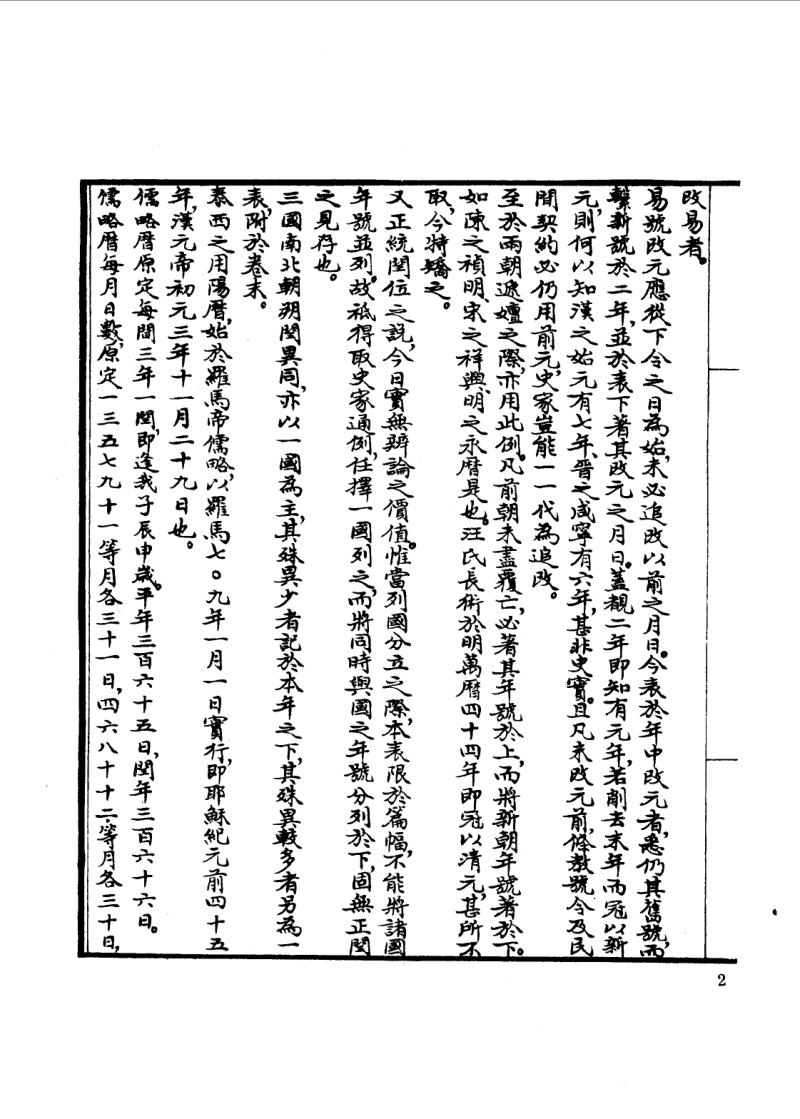 改易者。
易號改元應從下令之日為始,未必追改以前之月日。今表於年中改元者,悉仍其舊號,而
繫新號於二年,並於表下著其改元之月日。蓋觀二年即知有元年,若削去末年而冠以新
元,則何以知漢之始元有七年,晉之咸寧有六年,甚非史實。且凡未改元前,條教號令及民
間契約必仍用前元,史家豈能一一代為追改。
至於兩朝遞嬗之際,亦用此例。凡前朝未盡覆亡,必著其年號於上,而將新朝年號著於下。
如陳之禎明、宋之祥興、明之永曆是也。汪氏長術於明萬曆四十四年即冠以清元,甚所不
取,今特矯之。
又正統閏位之說,今日實無辨論之價值。惟當列國分立之際,本表限於篇幅,不能將諸國
年號並列。故祇得取史家通例,任擇一國列之,而將同時與國之年號分列於下,固無正閏
之見存也。
三國南北朝朔閏異同,亦以一國為主,其殊異少者記於本年之下,其殊異較多者另為一
表,附於卷末。
泰西之用陽曆,始於羅馬帝儒略,以羅馬七〇九年一月一日實行,即耶穌紀元前四十五
年,漢元帝初元三年十一月二十九日也。
儒略曆原定每間三年一閏,即逢我子辰申歲。平年三百六十五日,閏年三百六十六日。
儒略曆每月日數,原定一三五七九十一等月各三十一日,四六八十十二等月各三十日,
2